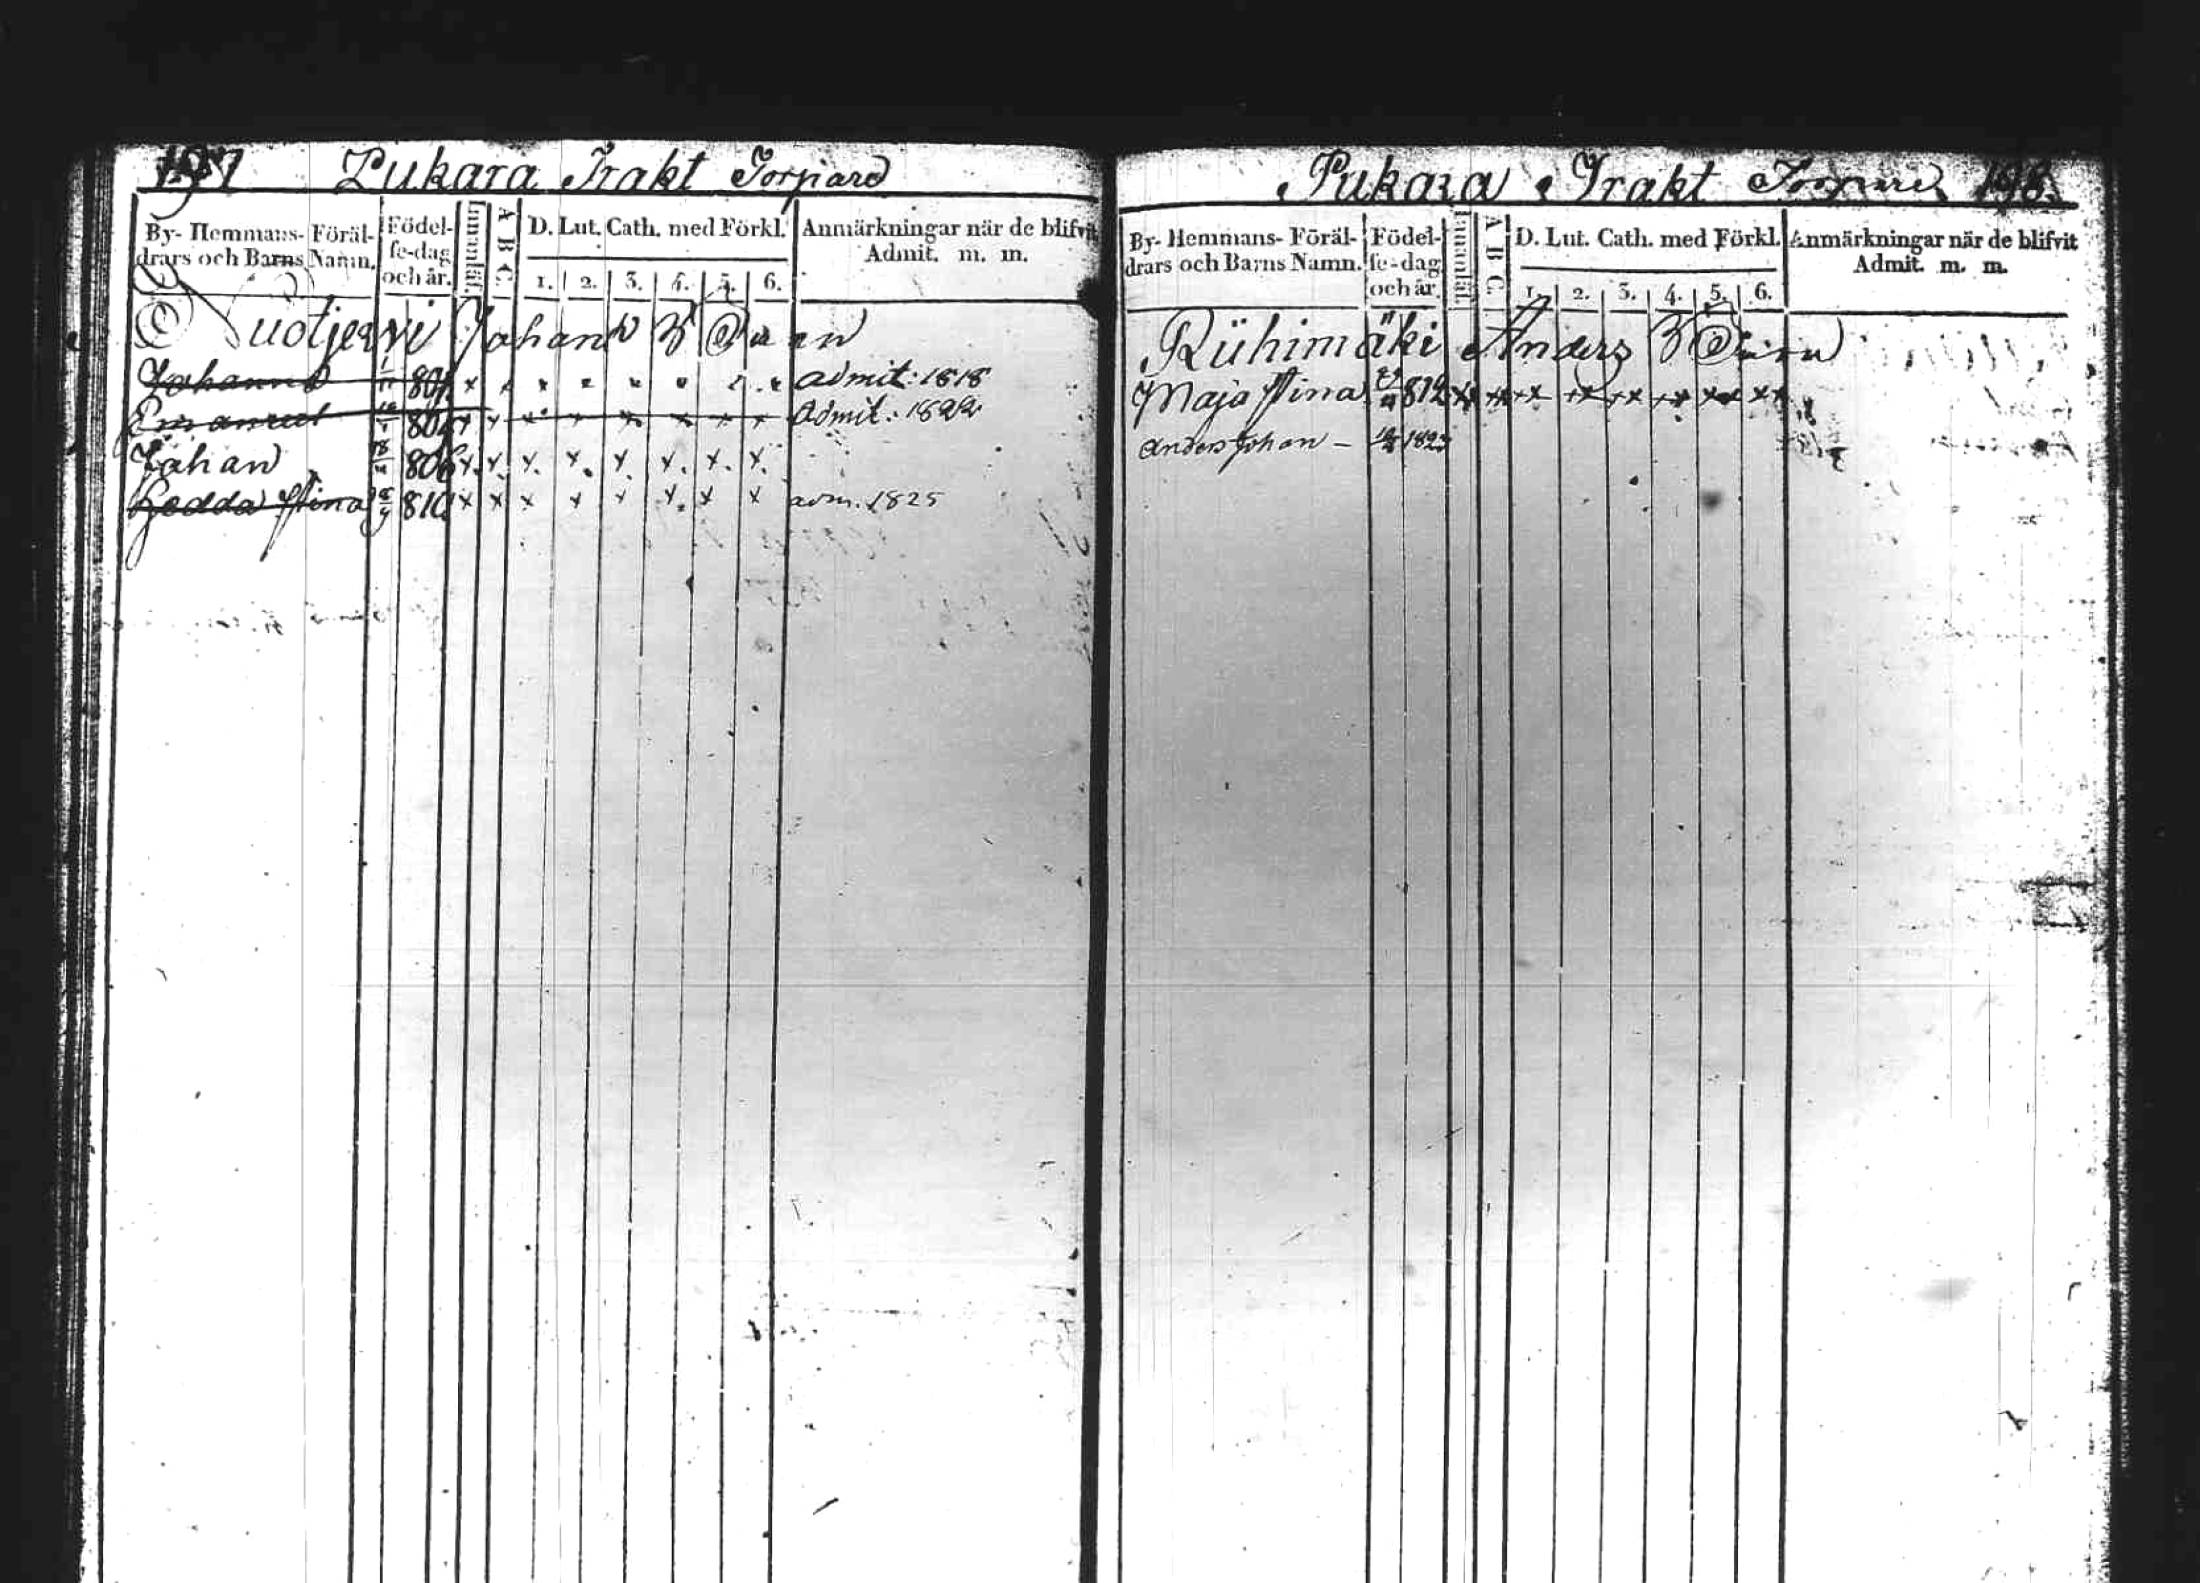 197 Pukara Trakt Torpare
By- Hemmans- Föräl-
drars och Barns Namn.
Födel-
se-dag
och år.
Innanläs.
A B C.
D. Lut. Cath. med Förkl.
1. 2. 3. 4. 5. 6.
Anmärkningar när de blifvit
Admit. m. m.
Nuotjervi Johans B
Johanna 1/11 801 x admit: 1818
Emanuel 802 x x x x x x x x Admit: 1822
Johan 18 806 x. x. x. x. x. x. x. x.
Hedda Stina 810 x x x x x x. x x adm. 1825
Pukara Trakt Torpare 198.
By- Hemmans- Föräl-
drars och Barns Namn.
Födel-
se-dag
och år.
Innanläs.
A B C.
D. Lut. Cath. med Förkl.
1. 2. 3. 4. 5. 6.
Anmärkningar när de blifvit
Admit. m. m.
Rühimäki Anders B
Maja Stina 812 xx xx xx xx xx xx xx xx
Anders Johan – 1823